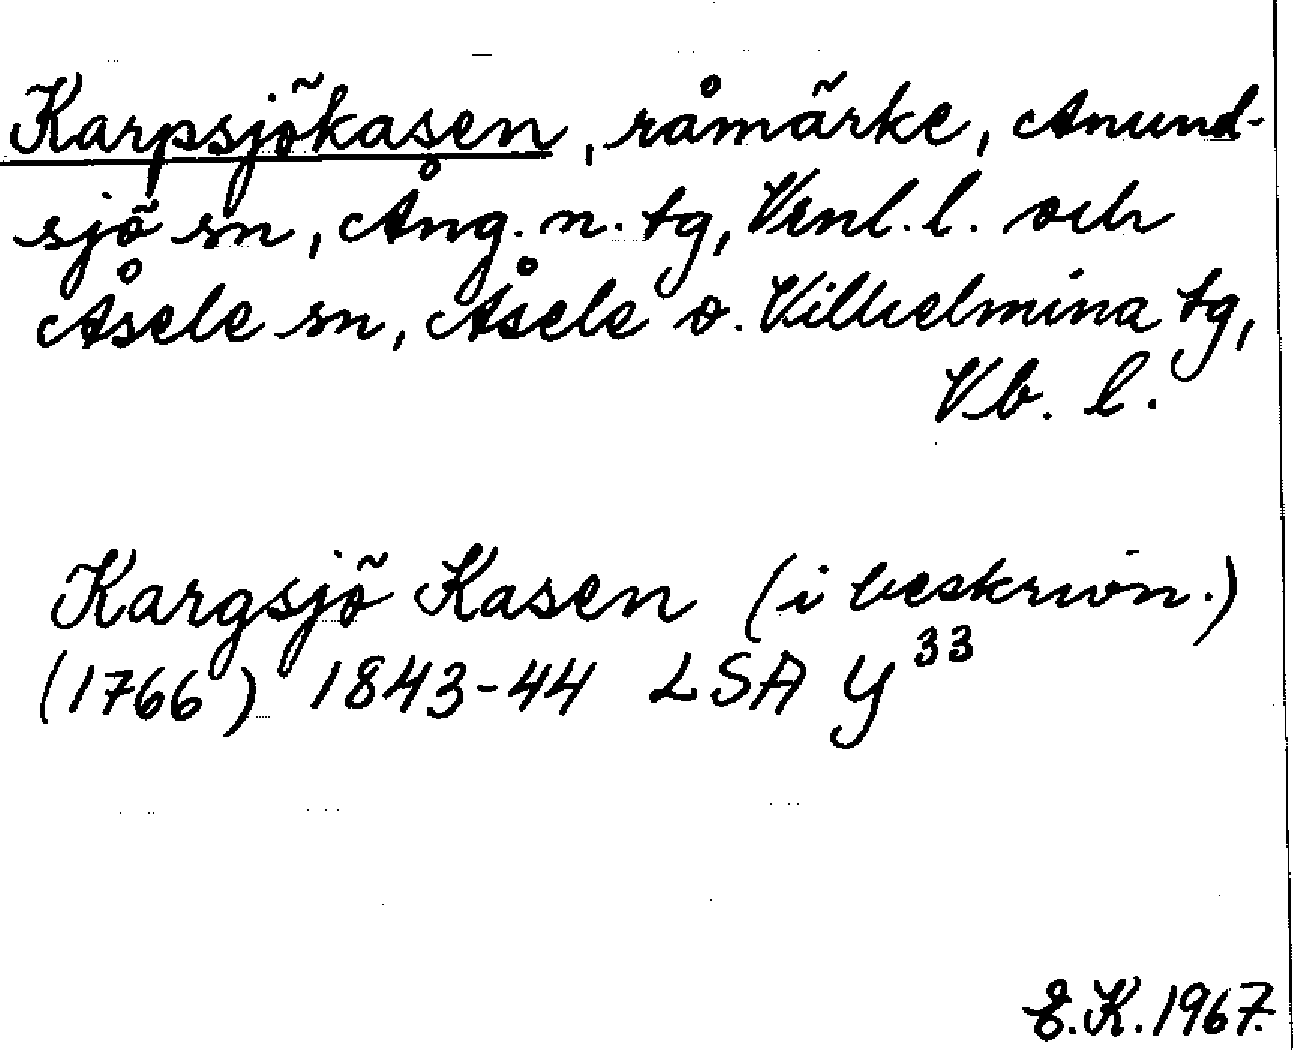 Karpsjökasen, råmärke, Anund-
sjö sn, Ång. n. tg, Vrnl. l. och
Åsele sn, Åsele o. Vilhelmina tg,
Vb. l.
Kargsjö Kasen (i beskrivn.)
(1766) 1843-44 LSA Y³³
E.K. 1967.